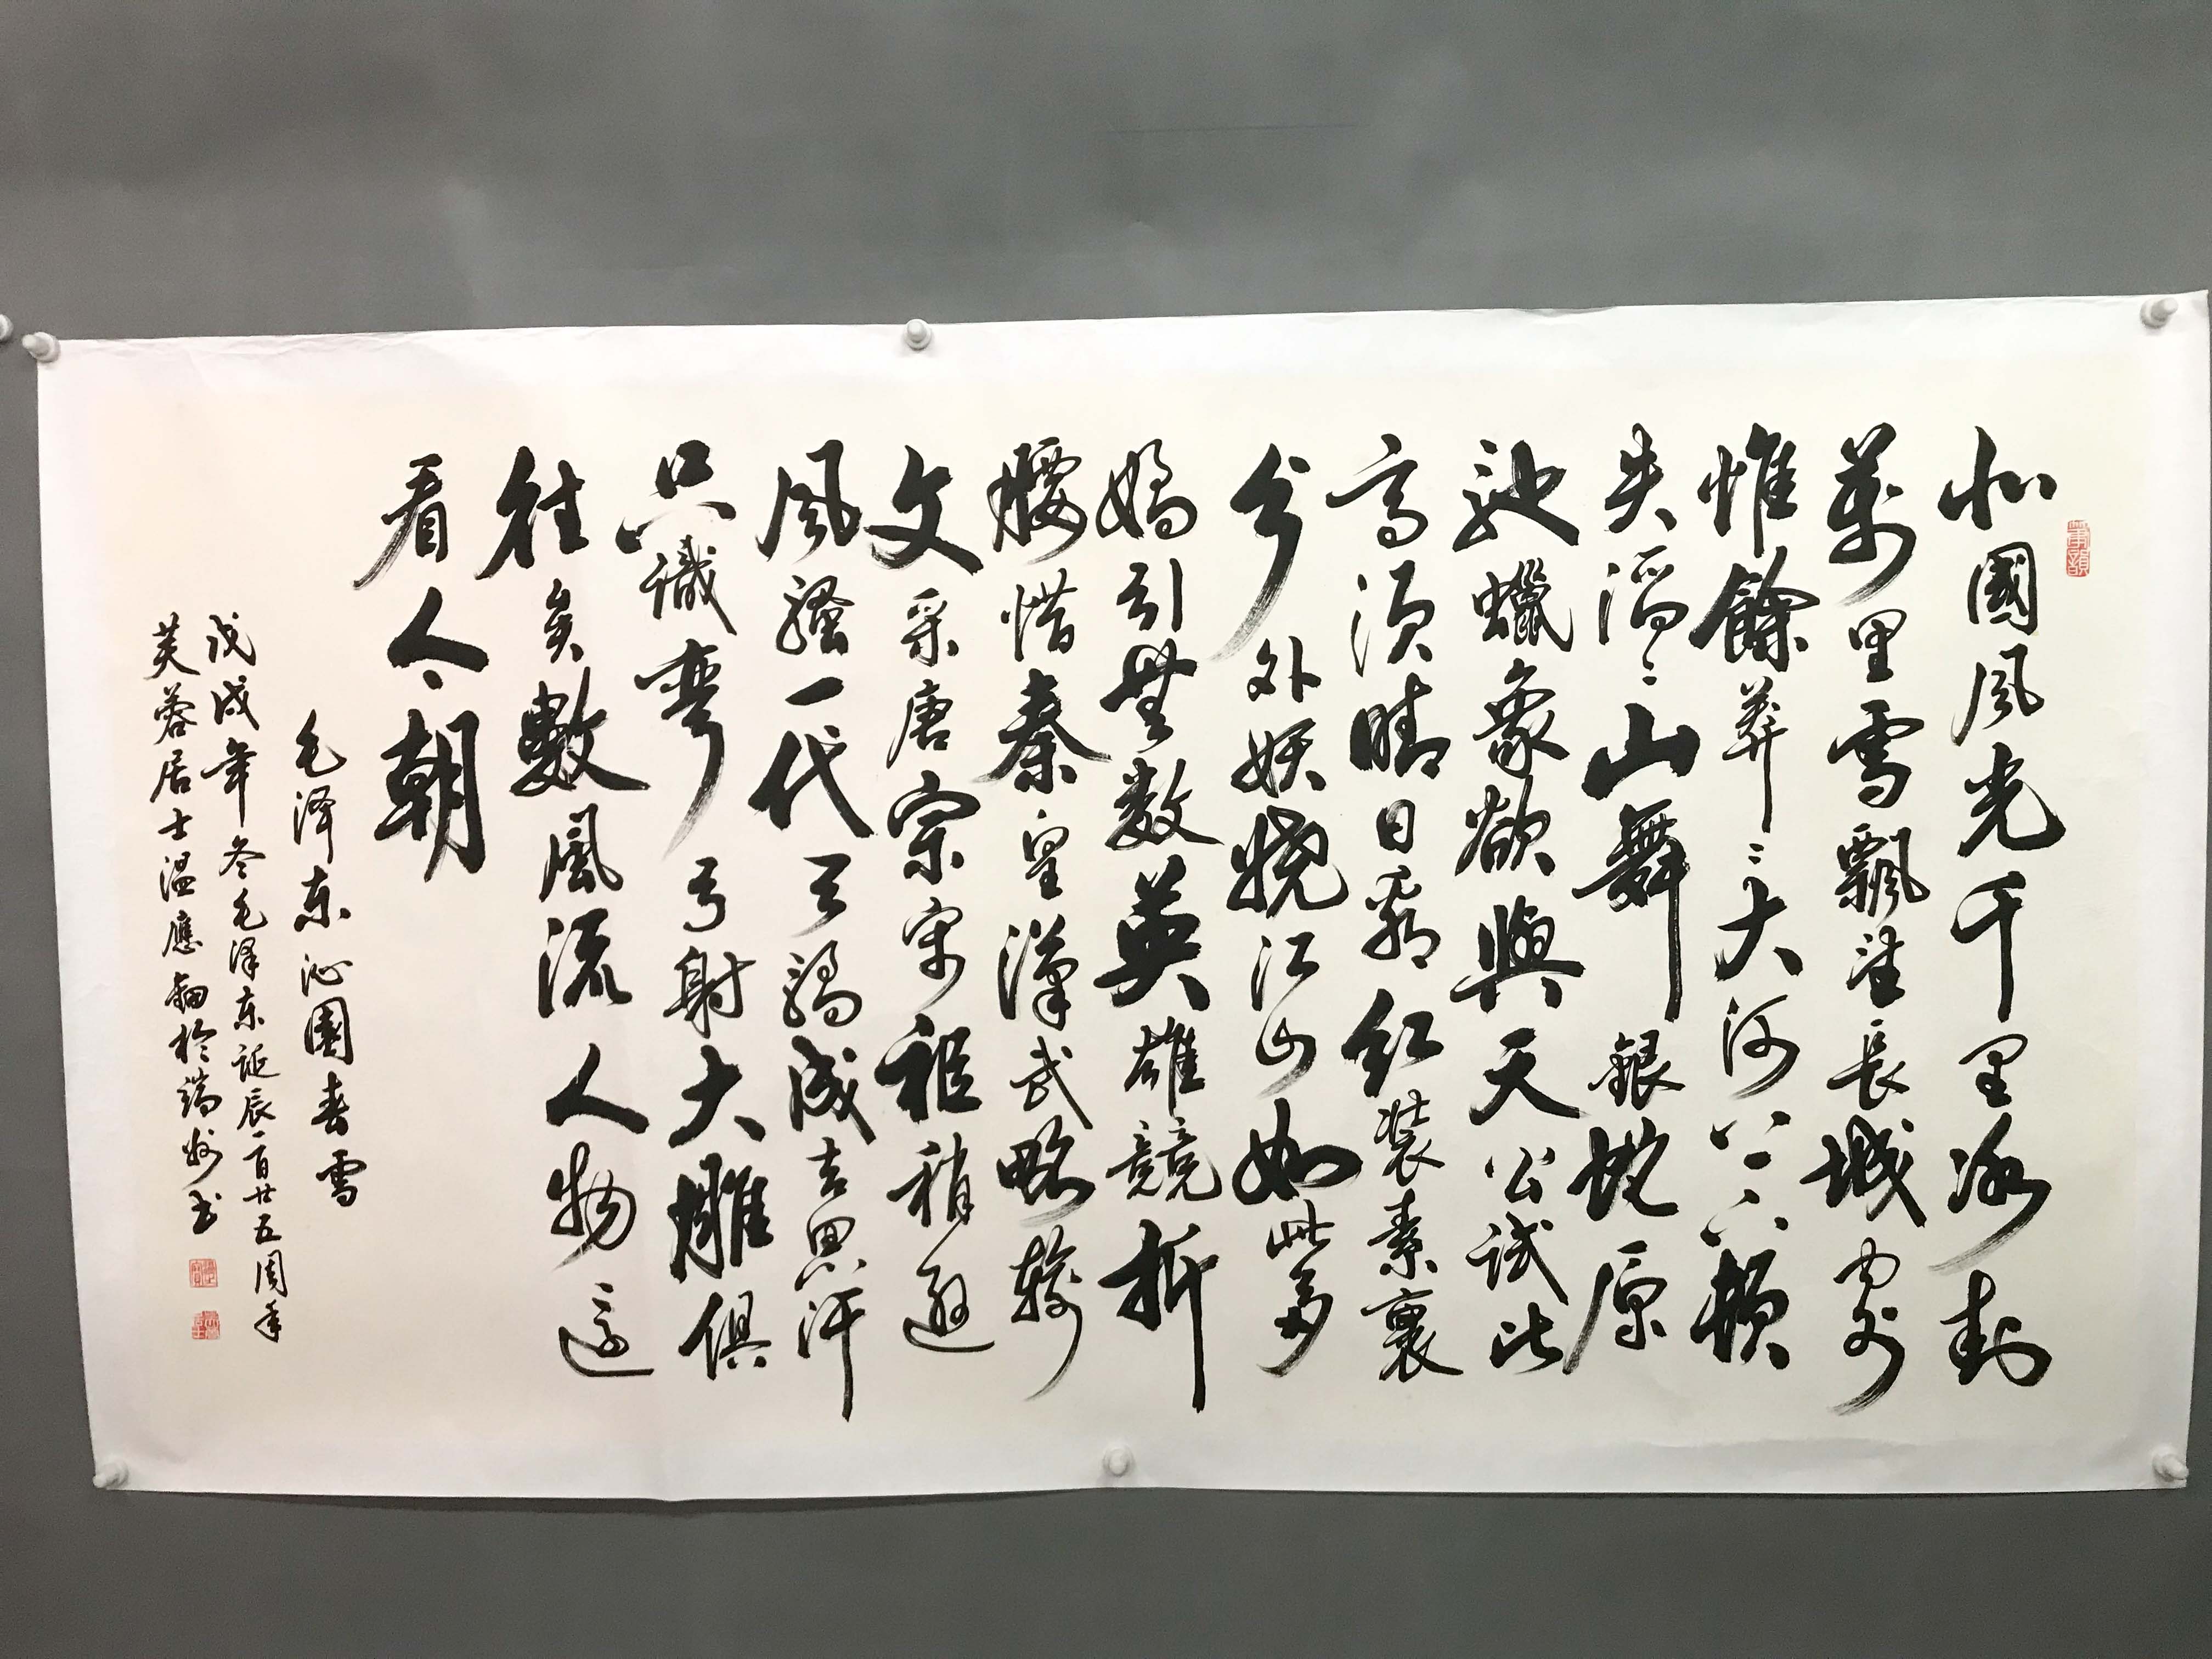 北國風光千里冰封
萬里雪飄望長城内外
惟餘莽〻大河上下頓
失滔〻山舞銀蛇原
馳蠟象欲與天公試比
高須晴日看紅装素裹
分外妖嬈江山如此多
嬌引無数英雄競折
腰惜秦皇漢武略輸
文采唐宗宋祖稍遜
風騷一代天驕成吉思汗
只識彎弓射大雕俱
往矣數風流人物還
看今朝
毛泽东沁園春雪
戊戌年冬毛泽东誕辰一百廿五周年
芙蓉居士温應於端州书